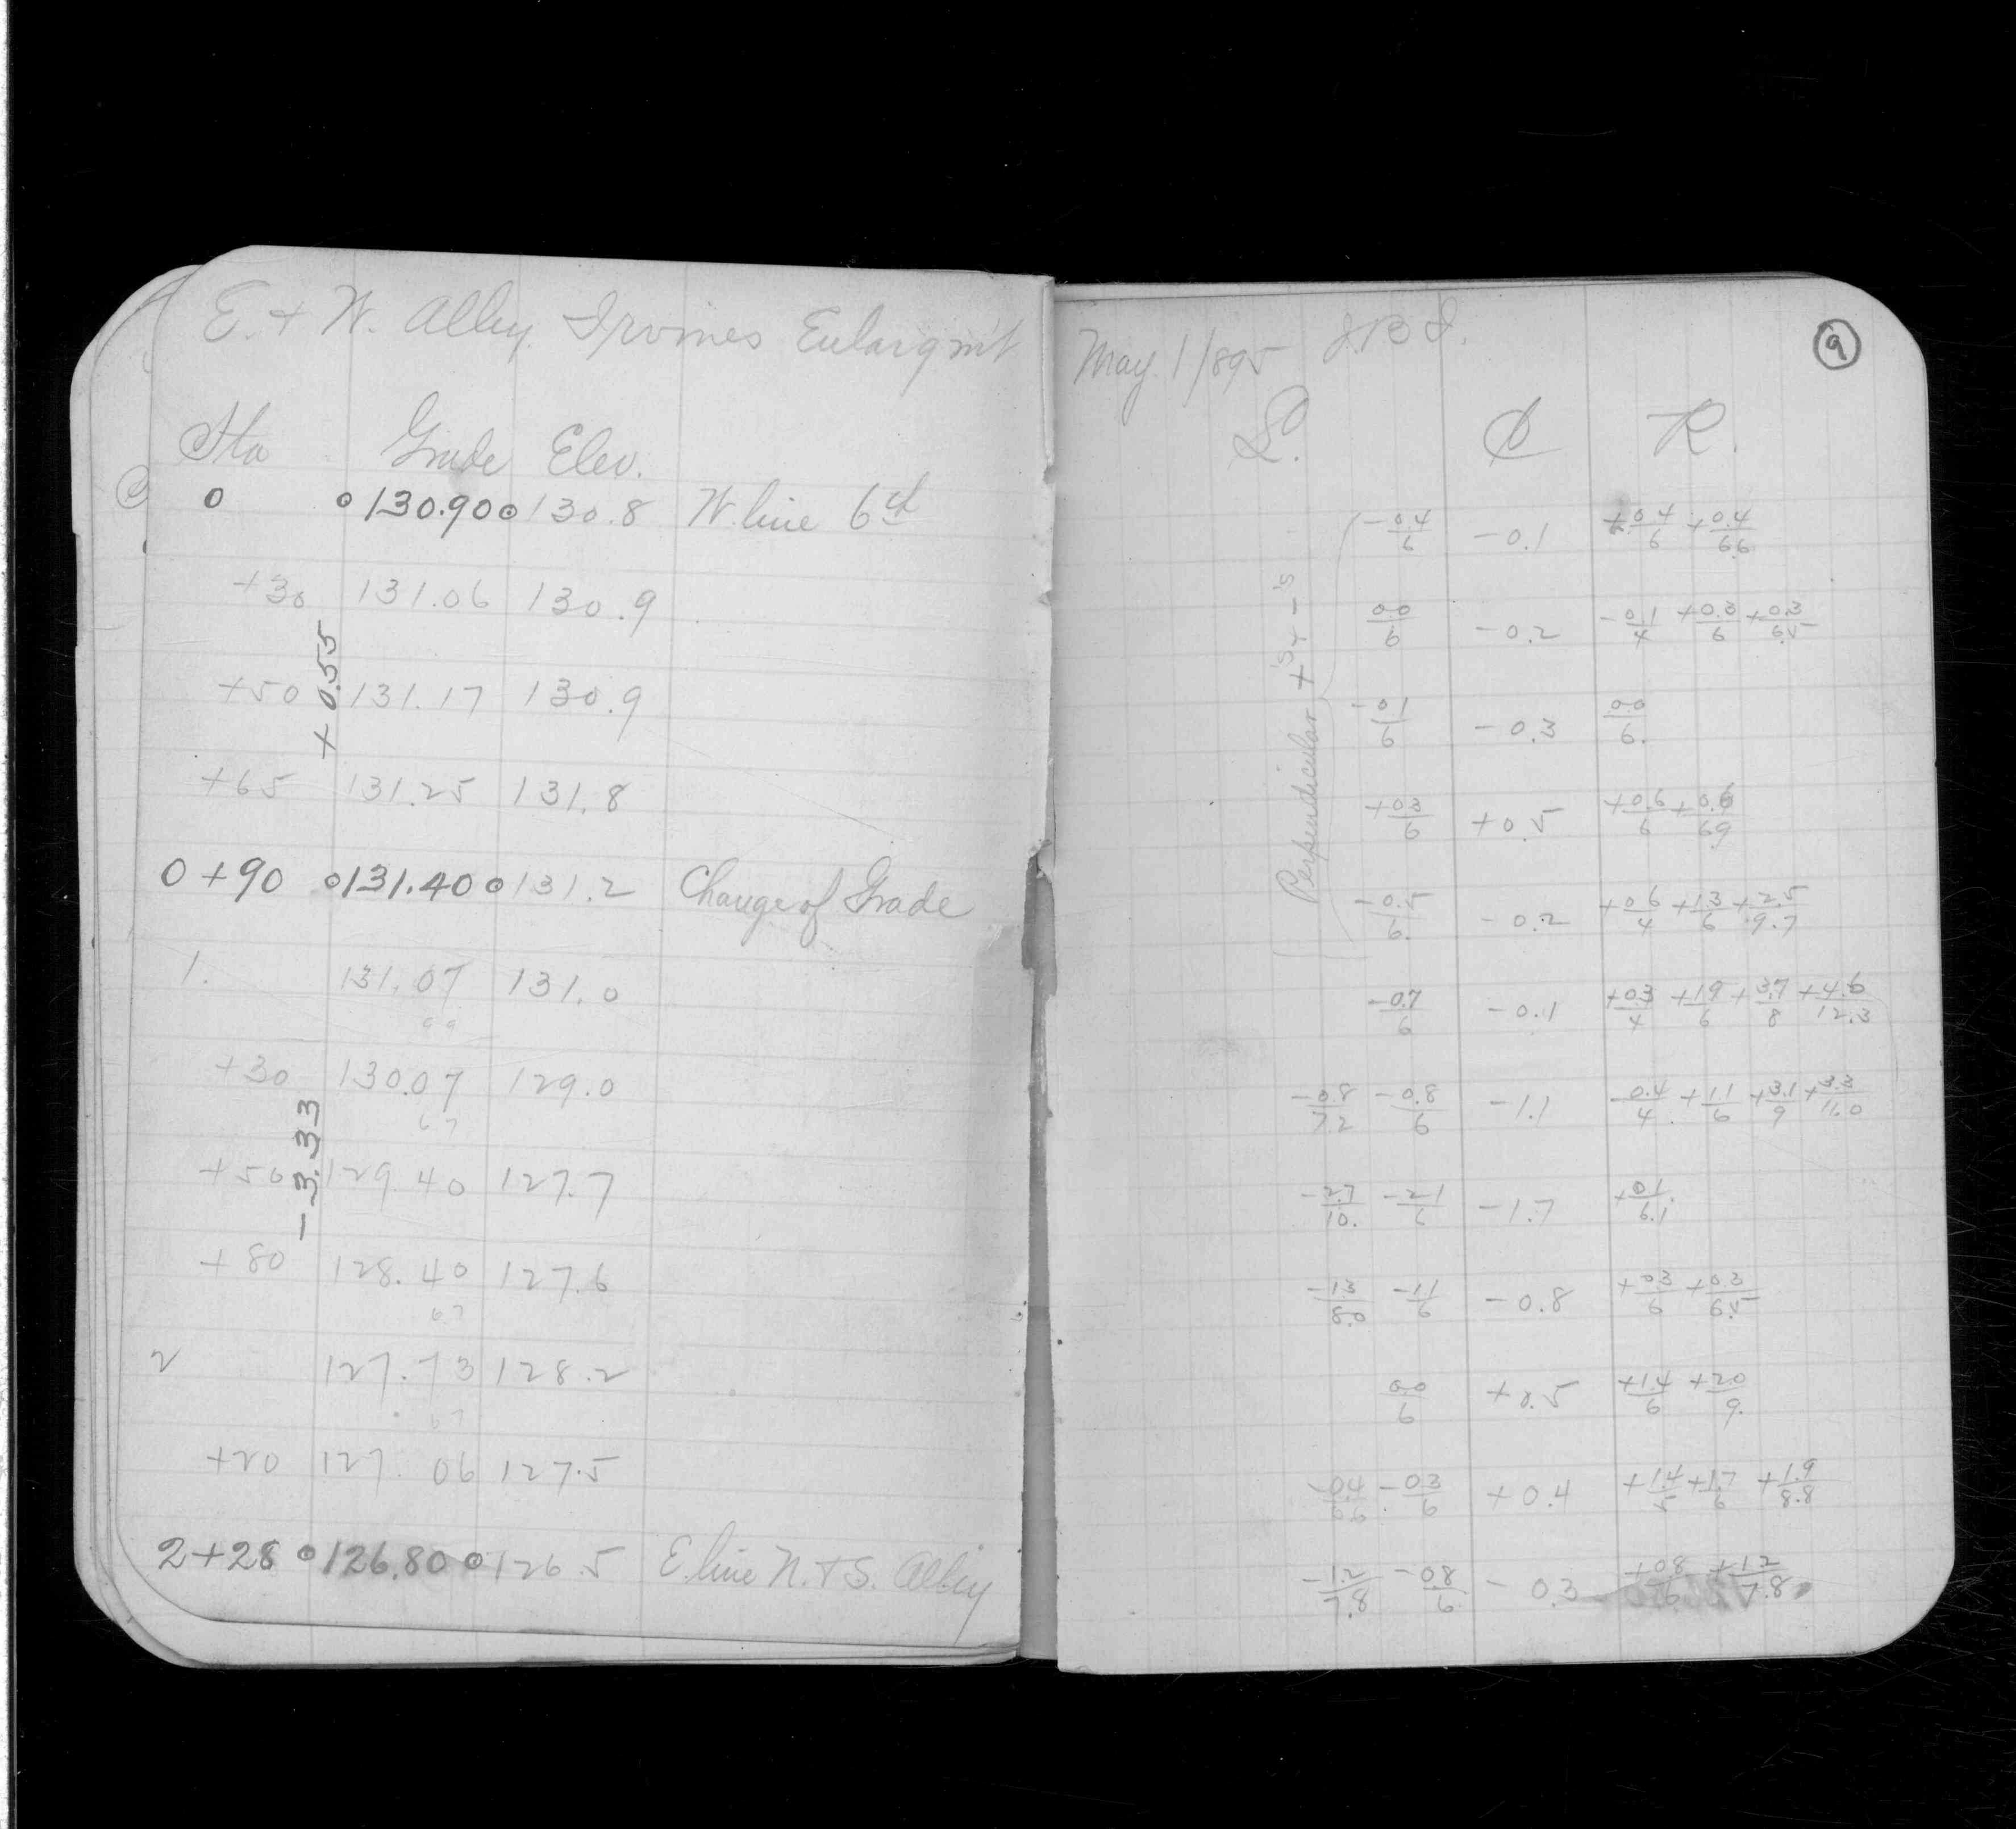 E. + W. Alley. Irvines Enlargm't
Sta Grade Elev.
0 130.90 130.8 W. line 6th
+30 131.06 130.9
+0.55
+50 131.17 130.9
+65 131.25 131.8
0+90 131.40 131.2 Change of Grade
1. 131.07 131.0
99
+30 130.07 129.0
67
-3.33
+50 129.40 127.7
+80 128.40 127.6
67
2 127.73 128.2
67
+20 127.06 127.5
2+28 126.80 126.5 E. line N. + S. Alley
May. 1/895 9
L. ℄ R.
Perpendicular +'s + -'s
-0.4/6 -0.1 +0.4/6 +0.4/6.6
0.0/6 -0.2 -0.1/4 +0.3/6 +0.3/6.5
-0.1/6 -0.3 0.0/6.
+0.3/6 +0.5 +0.6/6 +0.6/6.9
-0.5/6. -0.2 +0.6/4 +1.3/6 +2.5/9.7
-0.7/6 -0.1 +0.3/4 +1.9/6 +3.7/8 +4.6/12.3
-0.8/7.2 -0.8/6 -1.1 -0.4/4. +1.1/6 +3.1/9 +3.3/11.0
-2.7/10. -2.1/6 -1.7 +0.1/6.1
-1.3/8.0 -1.1/6 -0.8 +0.3/6 +0.3/6.5
0.0/6 +0.5 +1.4/6 +2.0/9.
-0.4/6.6 -0.3/6 +0.4 +1.4/5 +1.7/6 +1.9/8.8
-1.2/7.8 -0.8/6 -0.3 +0.8/6 +1.2/7.8